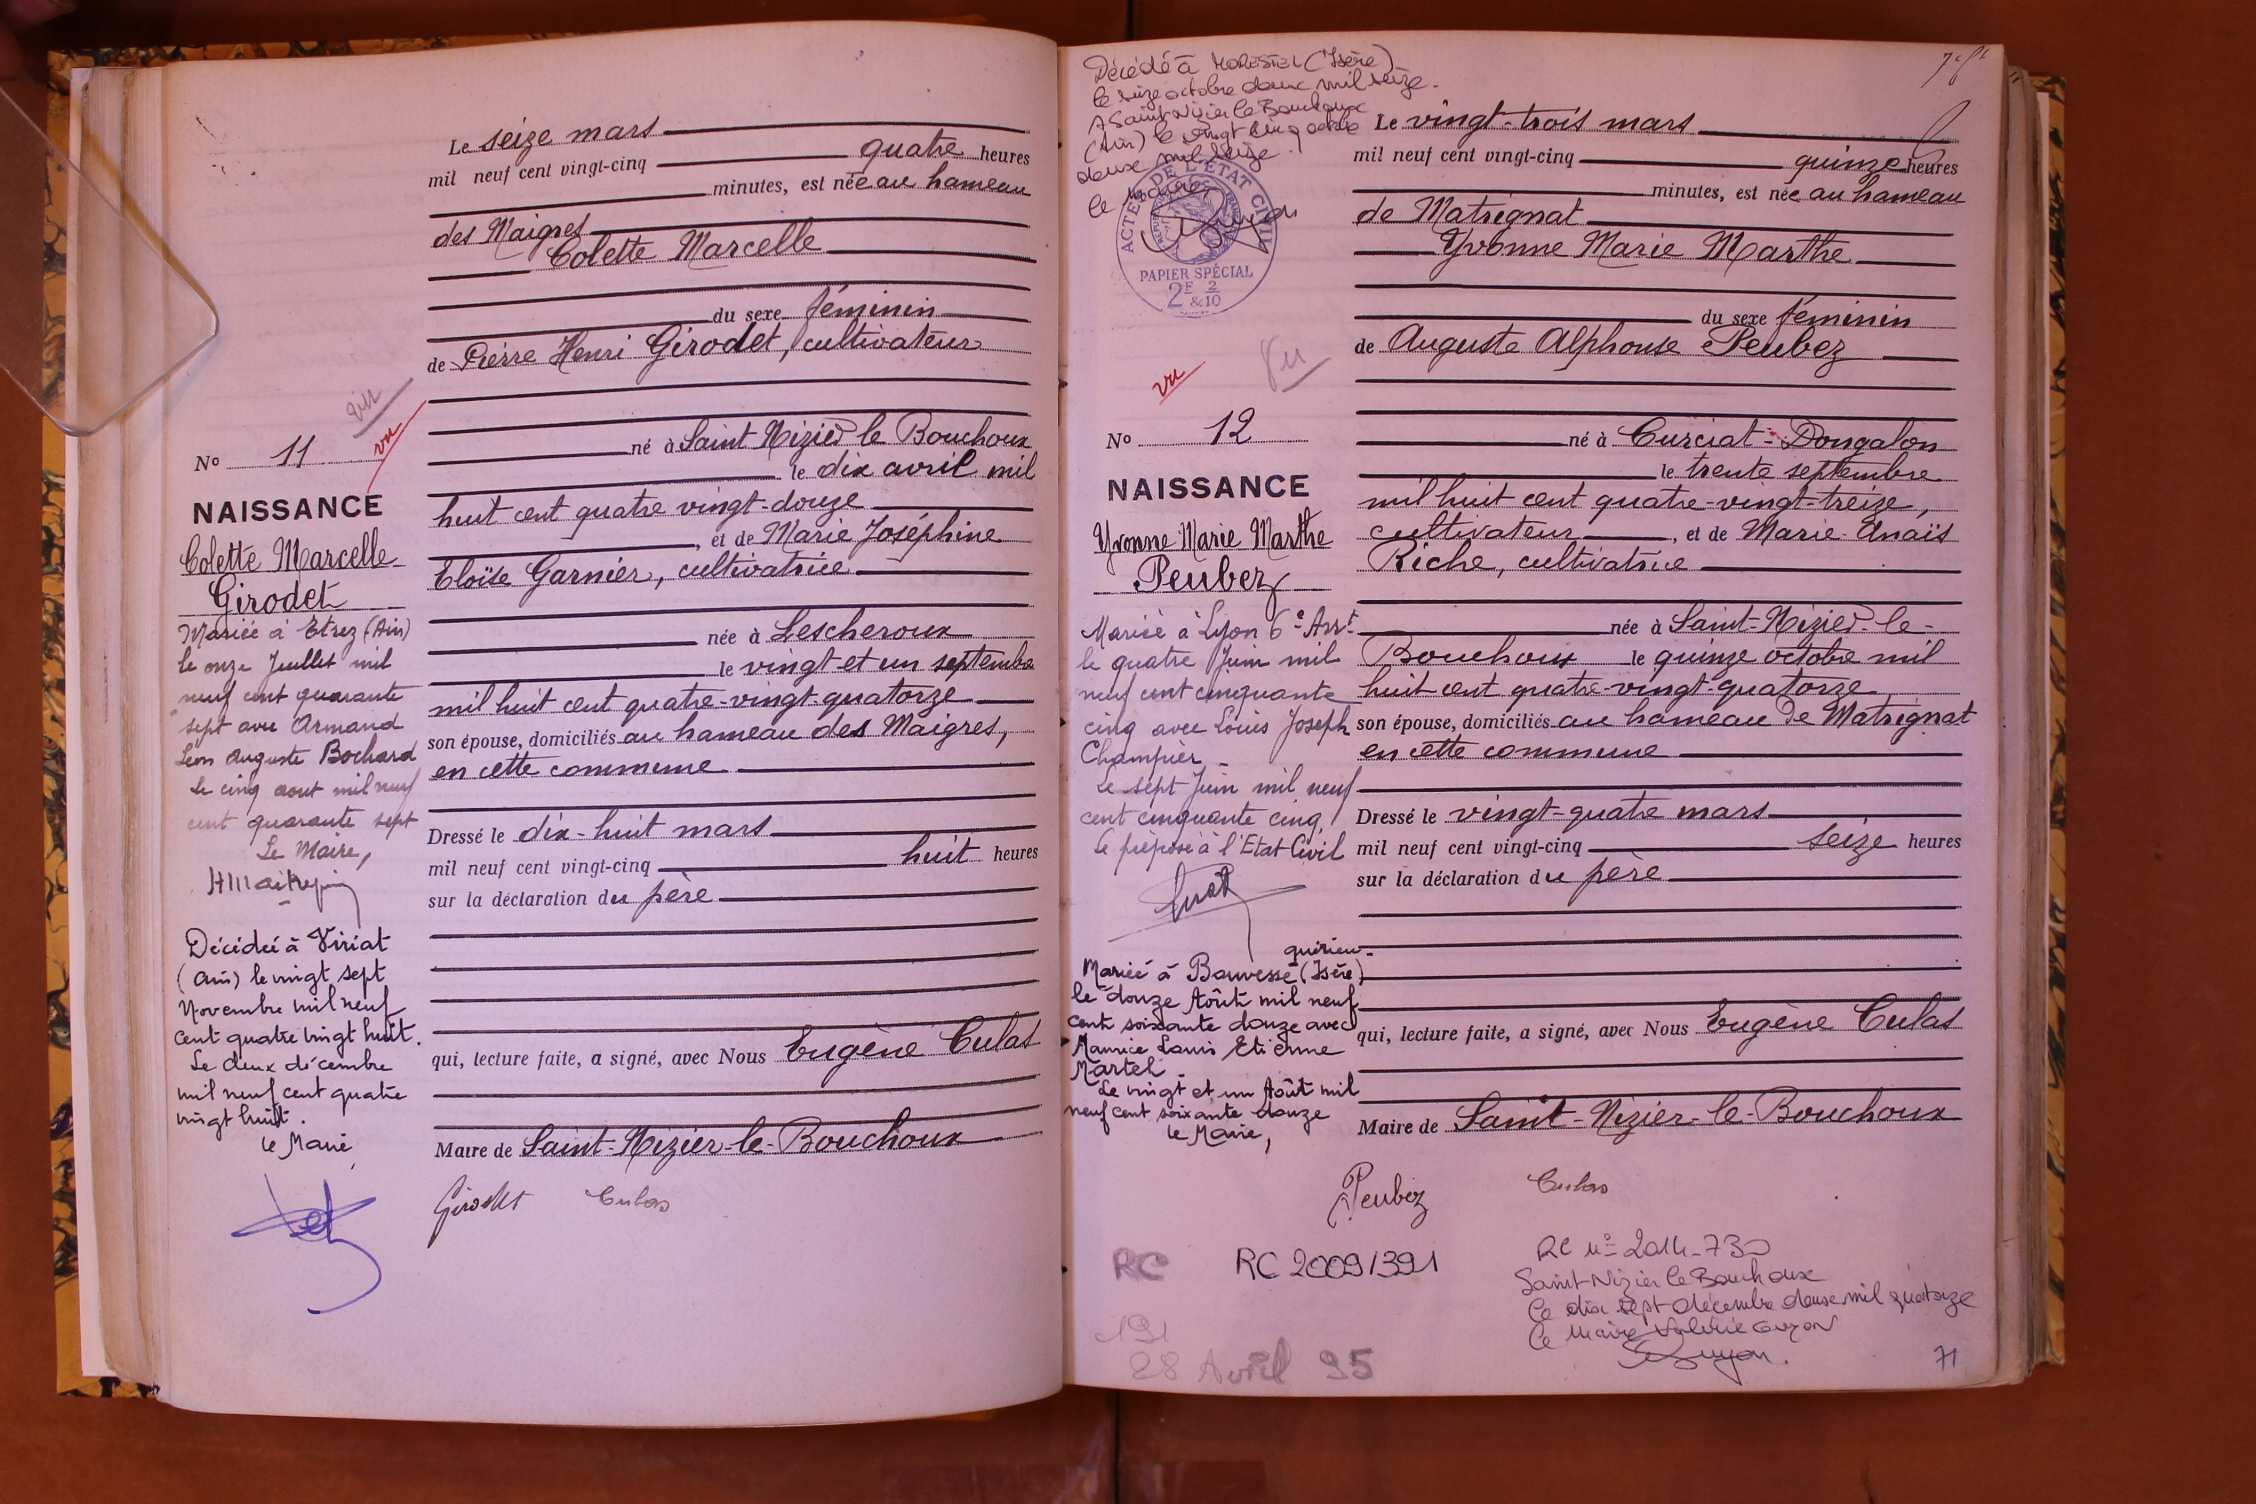 Le seize mars
mil neuf cent vingt-cinq quatre heures
minutes, est née au hameau
des Maigres
Colette Marcelle
du sexe féminin
de Pierre Henri Girodet, cultivateur
né à Saint Nizier le Bouchoux
le dix avril mil
huit cent quatre vingt-douze
, et de Marie Joséphine
Eloïse Garnier, cultivatrice
née à Lescheroux
le vingt-et un septembre
mil huit cent quatre-vingt-quatorze
son épouse, domiciliés au hameau des Maigres,
en cette commune
Dressé le dix-huit mars
mil neuf cent vingt-cinq huit heures
sur la déclaration du père
qui, lecture faite, a signé, avec Nous Eugène Culas
Maire de Saint-Nizier-le-Bouchoux
Girodet Culas
vu
vu
No 11
NAISSANCE
Colette Marcelle
Girodet
Mariée à Etrez (Ain)
le onze Juillet mil
neuf cent quarante
sept avec Armand
Léon Auguste Bochard
Le cinq aout mil neuf
cent quarante sept
Le Maire,
Décédée à Viriat
(Ain) le vingt sept
Novembre mil neuf
cent quatre vingt huit.
Le deux décembre
mil neuf cent quatre
vingt huit.
le Maire
Décédé à MORESTEL (Isère)
le seize octobre deux mil seize.
A Saint Nizier le Bouchoux
(Ain) le vingt cinq octobre
deux mil seize.
le Maire
ACTES DE L'ÉTAT CIVIL
PAPIER SPÉCIAL
2E 2
&10
vu
vu
No 12
NAISSANCE
Yvonne Marie Marthe
Peubez
Mariée à Lyon 6e Arrt
le quatre Juin mil
neuf cent cinquante
cinq avec Louis Joseph
Champier
Le sept Juin mil neuf
cent cinquante cinq.
Le préposé à l'Etat-Civil
quirieu
Mariée à Bouvesse (Isère)
le douze Août mil neuf
cent soixante douze avec
Maurice Louis Etienne
Martel.
Le vingt et un Août mil
neuf cent soixante douze
le Maire,
Le vingt-trois mars
mil neuf cent vingt-cinq quinze heures
minutes, est née au hameau
de Matrignat
Yvonne Marie Marthe
du sexe féminin
de Auguste Alphonse Peubez
né à Curciat-Dongalon
le trente septembre
mil huit cent quatre-vingt-treize,
cultivateur, et de Marie-Anaïs
Riche, cultivatrice
née à Saint-Nizier-le-
Bouchoux le quinze octobre mil
huit cent quatre-vingt-quatorze,
son épouse, domiciliés au hameau de Matrignat
en cette commune
Dressé le vingt-quatre mars
mil neuf cent vingt-cinq seize heures
sur la déclaration du père
qui, lecture faite, a signé, avec Nous Eugène Culas
Maire de Saint-Nizier-le-Bouchoux
Peubez Culas
RC RC 2009/391
RC n° 2014-730
Saint-Nizier le Bouchoux
Le dix sept décembre deux mil quatorze
Le Maire Valérie Guyon
191
28 Avril 95
71